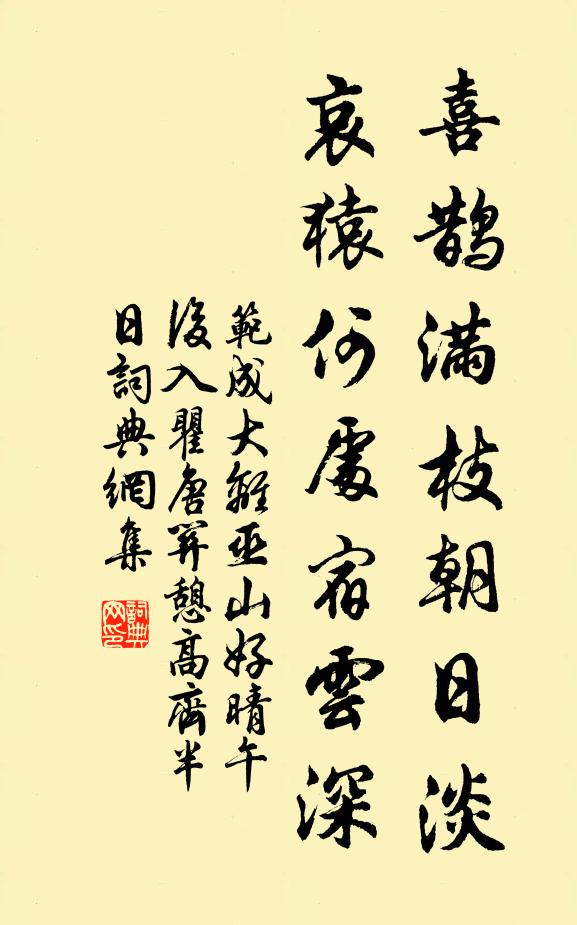 喜鵲滿枝朝日淡
哀猿何處宿雲深
範成大離巫山好晴午
後入瞿唐關憩高齋半
日詞典網集
詞典
网印